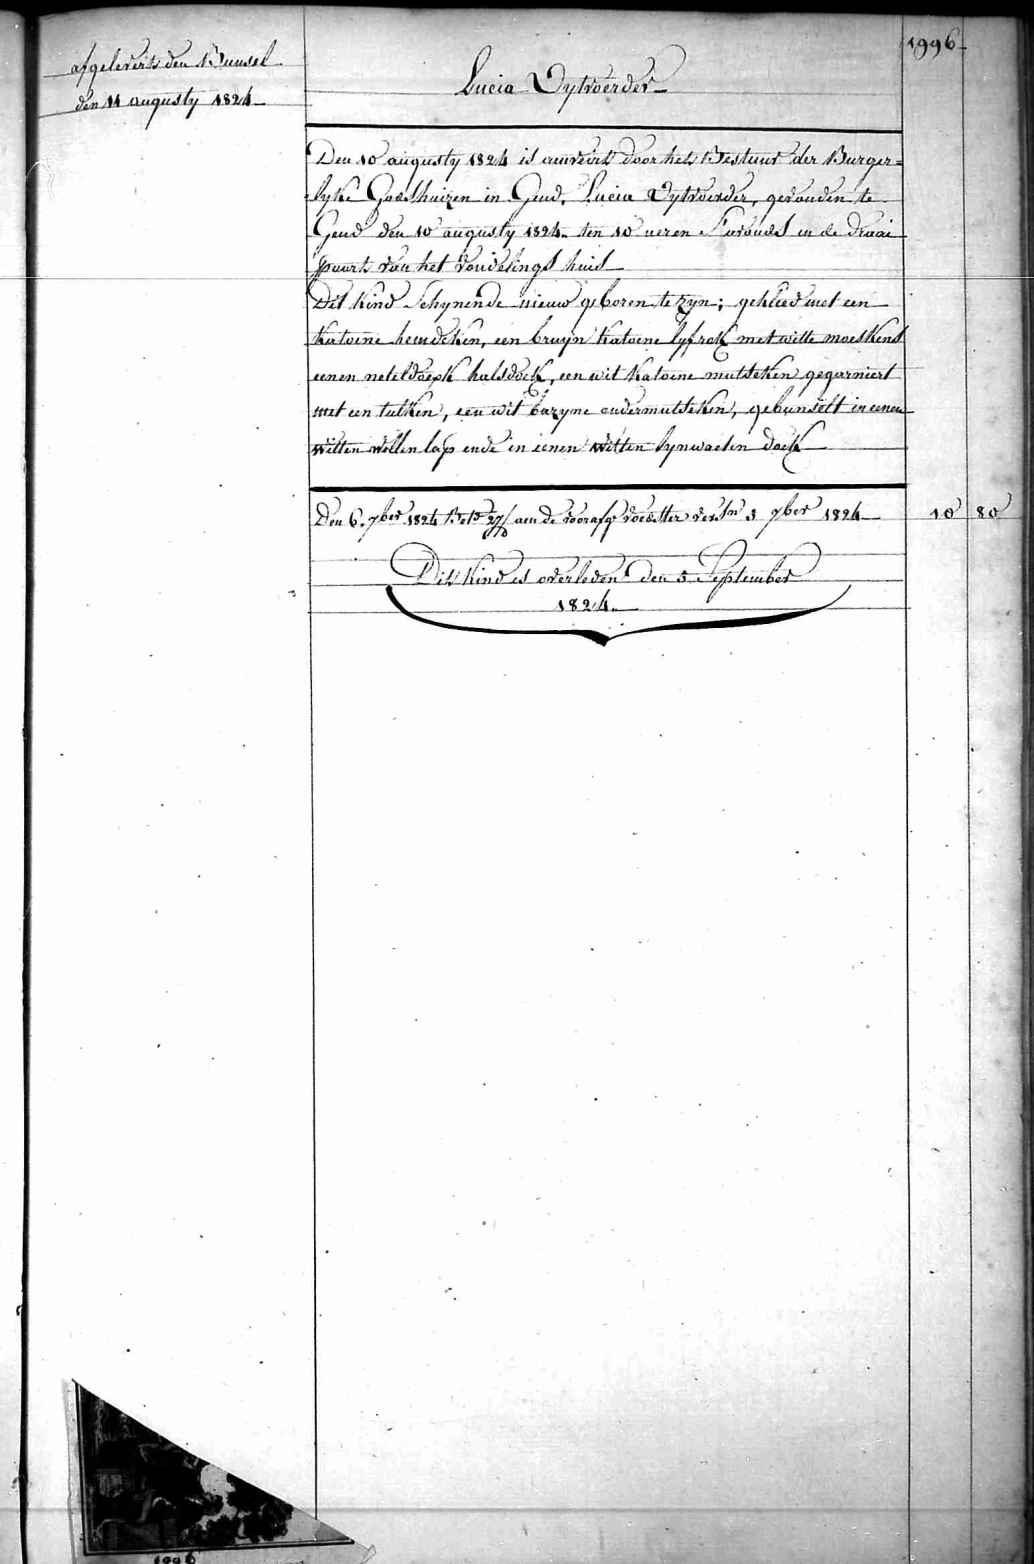 1996
afgeleverts den Bunsel
den 11 augusty 1824
Lucia Uytvoerder
Den 10 augusty 1824 is aenveirt door het Bestuur der Burger=
lyke Godshuizen in Gend, Lucia Uytvoerder, gevonden te
Gend den 10 augusty 1824. ten 10 ueren S'avonds in de draai
poorte van het vondelings huis
Dit kind schynende nieuw geboren te zyn; gekleed met een
katoene hemdeken, een bruyn katoene lyfrok met witte moeskens
eenen neteldoeck halsdoek, een wit katoene mutsken gegarniert
met een tulken, een wit bazyne ondermutsken, gebunselt in eenen
witten wollen lap ende in eenen witten lynwaeten doek
Den 6. 7ber 1824 Bet. 27/ aen de voorafg. voedster 3 7ber 1824 10 80
Dit kind is overleden den 3 September
1824.
1996